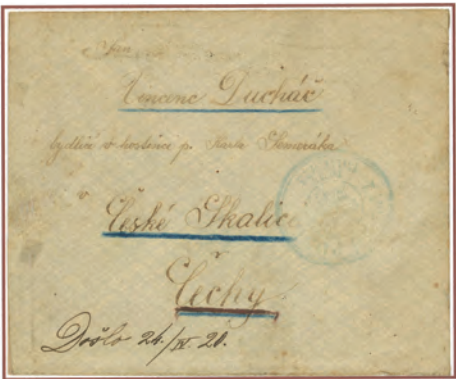 Pan
Vincenc Ducháč
bydlící v hostinci p. Karla
v
České Skalici
Čechy
Došlo 24./IV. 20.